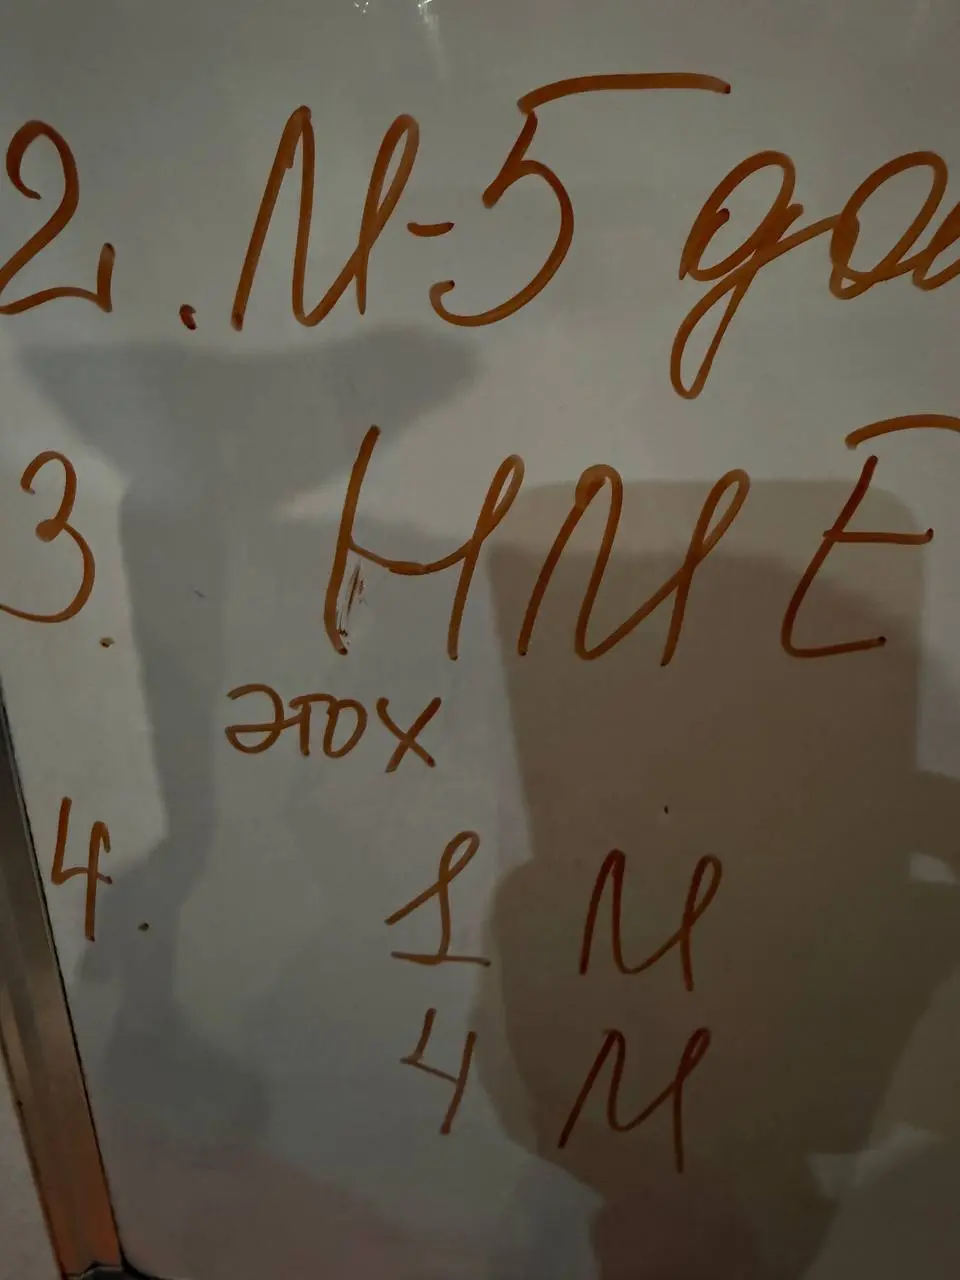 2. М-5 до
3. НМЕ
этох
4. 1 М
4 М